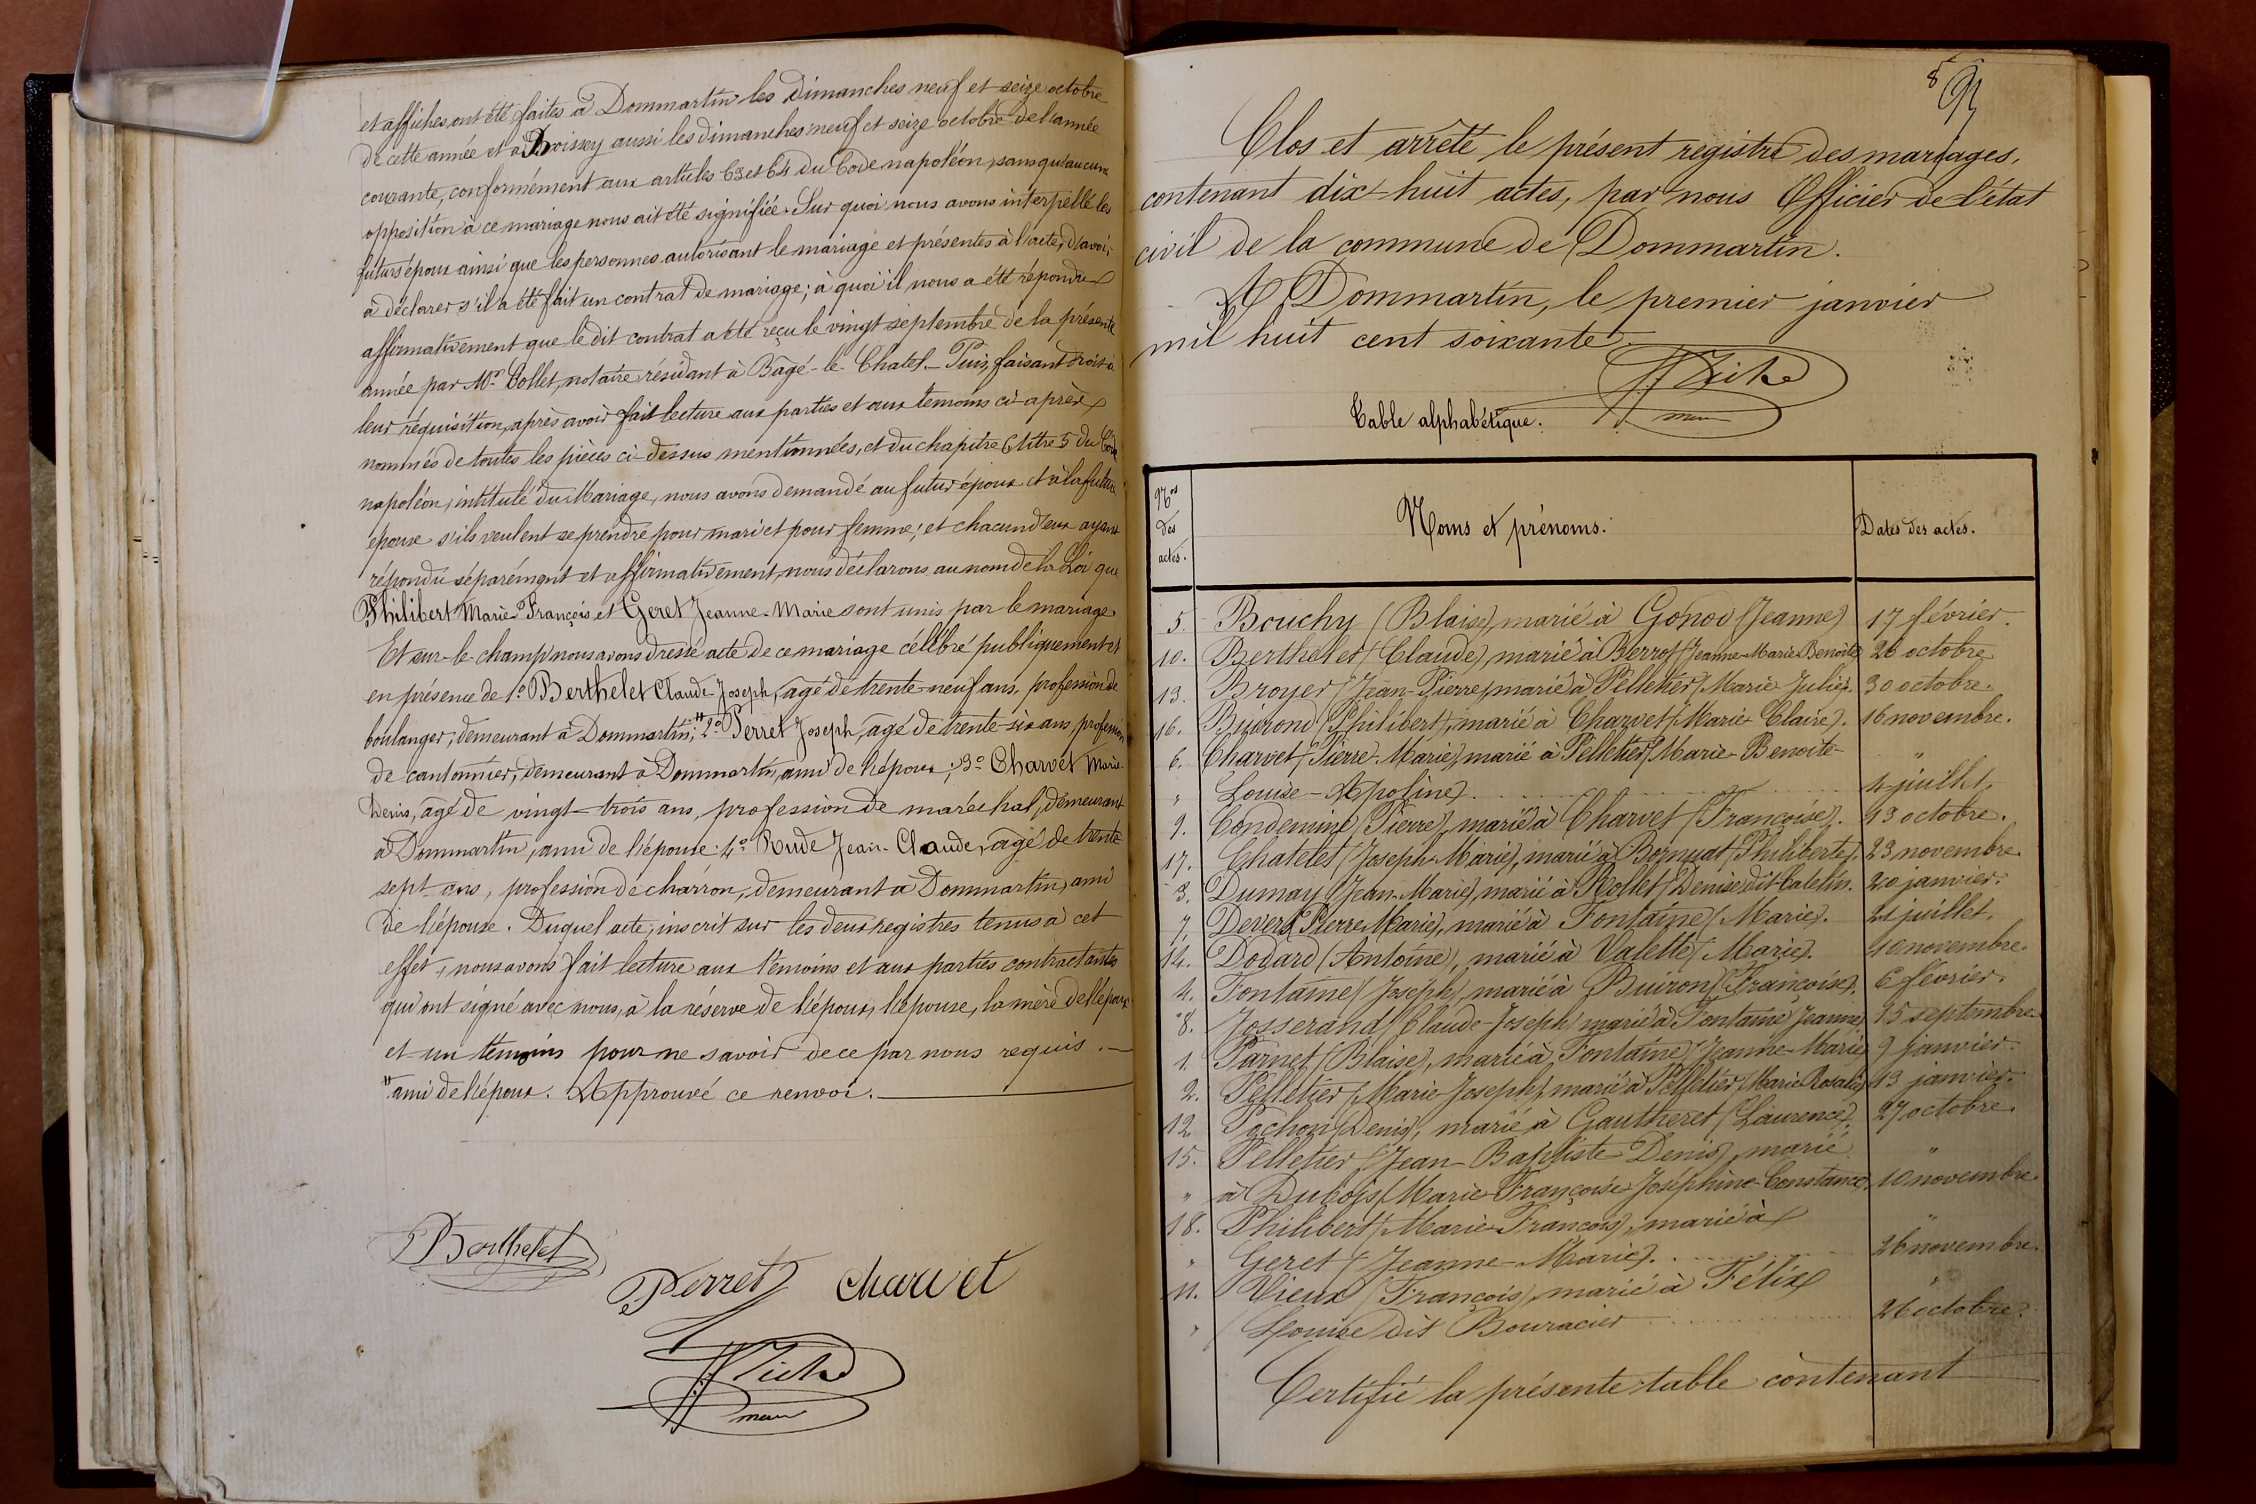 et affiches ont été faites à Dommartin les Dimanches neuf et seize octobre
de cette année et à Boissey aussi les dimanches neuf et seize octobre de l'année
courante, conformément aux articles 63 et 64 du Code napoléon, sans qu'aucune
opposition à ce mariage nous ait été signifiée. Sur quoi nous avons interpellé les
futurs époux ainsi que les personnes autorisant le mariage et présentes à l'acte, d'avoir
à déclarer s'il a été fait un contrat de mariage; à quoi il nous a été répondu
affirmativement que le dit contrat a été reçu le vingt septembre de la présente
année par Mre Collet, notaire résidant à Bâgé-le-Chatel. Puis, faisant droit à
leur réquisition, après avoir fait lecture aux parties et aux témoins ci-après
nommés de toutes les pièces ci-dessus mentionnées, et du chapitre 6 titre 5 du Code
napoléon, intitulé du Mariage, nous avons demandé au futur époux et à la future
épouse s'ils veulent se prendre pour mari et pour femme; et chacun d'eux ayant
répondu séparément et affirmativement, nous déclarons au nom de la Loi que
Philibert Marie-François et Geret Jeanne-Marie sont unis par le mariage.
Et sur-le-champ nous avons dressé acte de ce mariage célébré publiquement et
en présence de 1o Berthelet Claude-Joseph, âgé de trente-neuf ans, profession de
boulanger, demeurant à Dommartin; " 2o Perret Joseph, âgé de trente-six ans, profession
de cantonnier, demeurant à Dommartin, ami de l'époux; 3o Charvet Marie-
Denis, âgé de vingt-trois ans, profession de maréchal, demeurant
à Dommartin, ami de l'épouse. 4o Rude Jean-Claude, âgé de trente
sept ans, profession de charron, demeurant à Dommartin, ami
de l'épouse. Duquel acte, inscrit sur les deux registres tenus à cet
effet, nous avons fait lecture aux témoins et aux parties contractantes
qui ont signé avec nous, à la réserve de l'époux, l'épouse, la mère de l'époux
et un témoins pour ne savoir de ce par nous requis.
" ami de l'époux. Approuvé ce renvoi.
Berthelet
Perret Charvet
maire
Clos et arrêté le présent registre des mariages,
contenant dix-huit actes, par nous Officier de l'état
civil de la commune de Dommartin.
A Dommartin, le premier janvier
mil huit cent soixante.
maire
Table alphabétique.
Nos des actes. Noms et prénoms. Dates des actes.
5. Bouchy (Blaise), marié à Gonod (Jeanne) 17 février.
10. Berthelet (Claude), marié à Perrot (Jeanne-Marie-Benoite) 26 octobre
13. Broyer (Jean-Pierre) marié à Pelletier (Marie Julie). 30 octobre.
16. Buirond (Philibert), marié à Charvet (Marie Claire). 16 novembre.
6. Charvet (Pierre-Marie) marié à Pelletier (Marie-Benoite- "
" Louise-Apoline) 4 juillet.
9. Condemine (Pierre), marié à Charvet (Françoise). 13 octobre.
17. Chatelet (Joseph-Marie), marié à Boznyat (Philiberte). 23 novembre
3. Dumay (Jean-Marie), marié à Rollet (Denise) dit Catelin. 20 janvier.
7. Devers (Pierre Marie), marié à Fontaine (Marie). 21 juillet.
14. Dodard (Antoine), marié à Valette (Marie). 10 novembre.
4. Fontaine (Joseph), marié à Buiron (Françoise). 6 février.
8. Josserand (Claude-Joseph) marié à Fontaine (Jeanne) 15 septembre
1. Parnet (Blaise), marié à Fontaine (Jeanne-Marie) 9 janvier.
2. Pelletier (Marie Joseph), marié à Pelletier (Marie Rosalie) 13 janvier.
12 Pochon (Denis), marié à Gautheret (Laurence). 27 octobre.
15. Pelletier (Jean-Baptiste-Denis), marié "
" à Dubois (Marie-Françoise-Joséphine-Constance) 10 novembre
18. Philibert (Marie-François), marié à "
" Geret (Jeanne-Marie). 26 novembre.
11. Vieux (François), marié à Félix "
" Louise dit Bouracier 26 octobre.
Certifié la présente table contenant